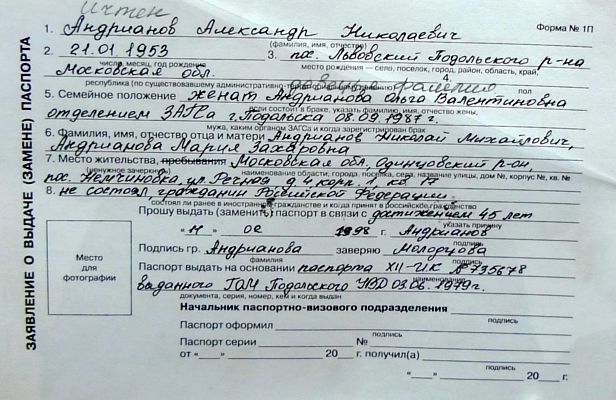 Учтен
Форма № 1П
ЗАЯВЛЕНИЕ О ВЫДАЧЕ (ЗАМЕНЕ) ПАСПОРТА
1. Андрианов Александр Николаевич
(фамилия, имя, отчество)
2. 21.01 1953 3. пос. Львовский Подольского р-на
число, месяц, год рождения место рождения — село, поселок, город, район, область, край,
Московская обл. 4.
республика (по существовавшему административно пол
5. Семейное положение женат Андрианова Ольга Валентиновна
если состоит в браке, указать фамилию, имя, отчество жены,
отделением ЗАГСа г. Подольска 08.09.1987 г.
мужа, каким органом ЗАГСа и когда зарегистрирован брак
6. Фамилия, имя, отчество отца и матери Андрианов Николай Михайлович,
Андрианова Мария Захаровна
7. Место жительства, пребывания Московская обл, Одинцовский р-он
(ненужное зачеркнуть) наименование области, города, поселка, села, название улицы, дом №, корпус №, кв. №
пос. Немчиновка, ул. Лесная д. 4, корп. 1, кв. 17
8. не состоял, гражданин Российской Федерации
состоял ли ранее в иностранном гражданстве и когда принят в российское гражданство
Прошу выдать (заменить) паспорт в связи с достижением 45 лет
указать причину
"11" 02 1998 г. Андрианов
подпись
Подпись гр. Андрианова заверяю Молодцова
фамилия подпись
Место
для
фотографии
Паспорт выдать на основании паспорта XII-ИК № 735678
наименование
выданного ГОМ Подольского УВД 03.06.1979 г.
документа, серия, номер, кем и когда выдан
Начальник паспортно-визового подразделения
подпись
Паспорт оформил
подпись
Паспорт серии №
от "___" 20 г. получил(а)
подпись
"___" 20 г.